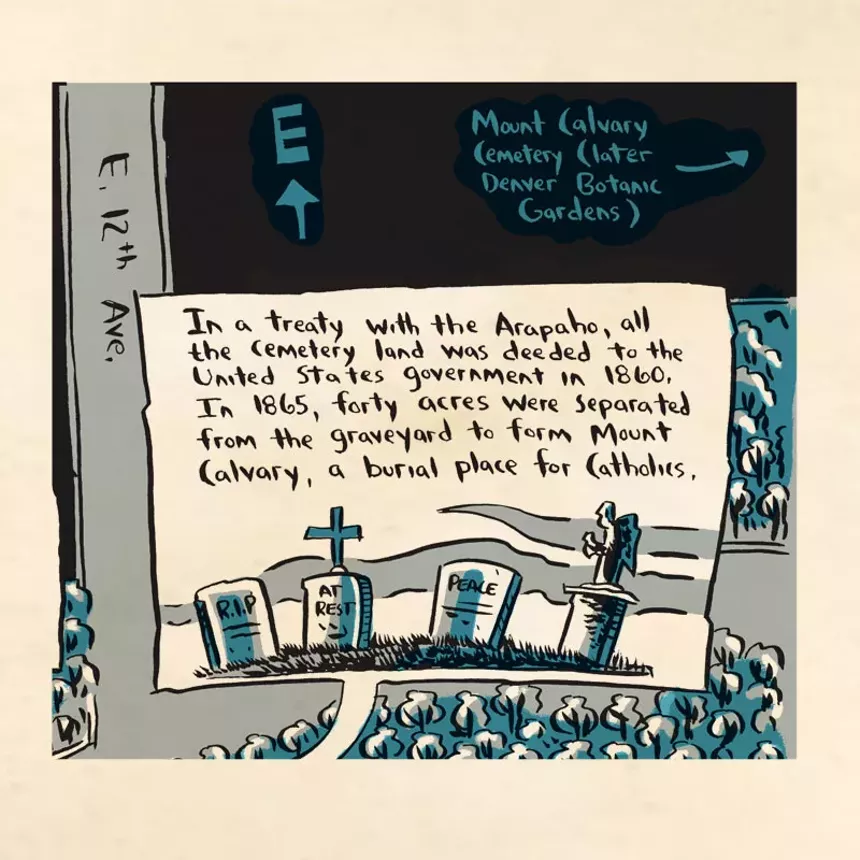 E
Mount Calvary
Cemetery (later
Denver Botanic
Gardens)
E. 12th Ave.
In a treaty with the Arapaho, all
the cemetery land was deeded to the
United States government in 1860.
In 1865, forty acres were separated
from the graveyard to form Mount
Calvary, a burial place for Catholics.
R.I.P
AT
REST
PEACE